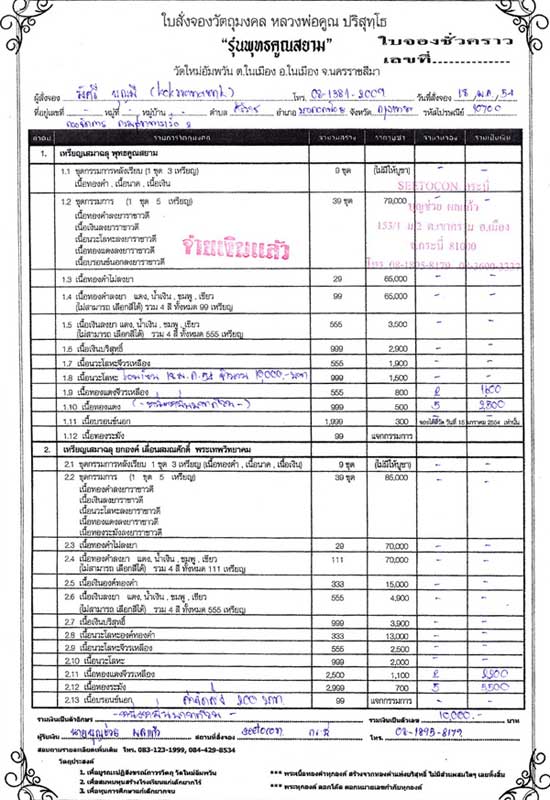 ใบสั่งจองวัตถุมงคล หลวงพ่อคูณ ปริสุทฺโธ
"รุ่นพุทธคูณสยาม"
ใบจองชั่วคราว
เลขที่
วัดใหม่อัมพวัน ต.ในเมือง อ.ในเมือง จ.นครราชสีมา
ผู้สั่งจอง โทร. วันที่สั่งจอง 18 ม.ค. 54
ที่อยู่เลขที่ หมู่ที่ หมู่บ้าน ตำบล ศิริราช อำเภอ บางกอกน้อย จังหวัด กรุงเทพ รหัสไปรษณีย์ 10700
ลำดับ รายการวัตถุมงคล จำนวนสร้าง ราคาบูชา จำนวนจอง รวมเป็นเงิน
1. เหรียญเสมาฉลุ พุทธคูณสยาม
1.1 ชุดกรรมการหลังเรียบ (1 ชุด 3 เหรียญ) 9 ชุด (ไม่มีให้บูชา) - -
เนื้อทองคำ , เนื้อนาค , เนื้อเงิน
1.2 ชุดกรรมการ (1 ชุด 5 เหรียญ) 39 ชุด 79,000 - -
เนื้อทองคำลงยาราชาวดี
เนื้อเงินลงยาราชาวดี
เนื้อนวะโลหะลงยาราชาวดี
เนื้อทองแดงลงยาราชาวดี
เนื้อบรอนซ์นอกลงยาราชาวดี
จ่ายเงินแล้ว
SEETOCON กระบี่
บุญช่วย ผลแก้ว
153/1 ม.2 อ.เมือง
จ.กระบี่ 81000
โทร. 08-1895-8179
1.3 เนื้อทองคำไม่ลงยา 29 65,000 - -
1.4 เนื้อทองคำลงยา แดง, น้ำเงิน , ชมพู , เขียว 99 65,000 - -
(ไม่สามารถ เลือกสีได้) รวม 4 สี ทั้งหมด 99 เหรียญ
1.5 เนื้อเงินลงยา แดง, น้ำเงิน , ชมพู , เขียว 555 3,500 - -
(ไม่สามารถ เลือกสีได้) รวม 4 สี ทั้งหมด 555 เหรียญ
1.6 เนื้อเงินบริสุทธิ์ 999 2,900 - -
1.7 เนื้อนวะโลหะจีวรเหลือง 555 1,900 - -
1.8 เนื้อนวะโลหะ โอนเงิน 18 ม.ค. 54 จำนวน 10,000.- บาท 999 1,500 - -
1.9 เนื้อทองแดงจีวรเหลือง 555 800 2 1600
1.10 เนื้อทองแดง 999 500 5 2,500
1.11 เนื้อบรอนซ์นอก 1,999 300 จองได้ถึง วันที่ 15 มกราคม 2554 เท่านั้น
1.12 เนื้อทองระฆัง 99 แจกกรรมการ
2. เหรียญเสมาฉลุ ยกองค์ เลื่อนสมณศักดิ์ พระเทพวิทยาคม
2.1 ชุดกรรมการหลังเรียบ 1 ชุด 3 เหรียญ (เนื้อทองคำ , เนื้อนาค , เนื้อเงิน) 9 ชุด (ไม่มีให้บูชา) - -
2.2 ชุดกรรมการ (1 ชุด 5 เหรียญ) 39 ชุด 85,000 - -
เนื้อทองคำลงยาราชาวดี
เนื้อเงินลงยาราชาวดี
เนื้อนวะโลหะลงยาราชาวดี
เนื้อทองแดงลงยาราชาวดี
เนื้อทองระฆังลงยาราชาวดี
2.3 เนื้อทองคำไม่ลงยา 29 70,000 - -
2.4 เนื้อทองคำลงยา แดง, น้ำเงิน , ชมพู , เขียว 111 70,000 - -
(ไม่สามารถ เลือกสีได้) รวม 4 สี ทั้งหมด 111 เหรียญ
2.5 เนื้อเงินองค์ทองคำ 333 15,000 - -
2.6 เนื้อเงินลงยา แดง, น้ำเงิน , ชมพู , เขียว 555 4,900 - -
(ไม่สามารถ เลือกสีได้) รวม 4 สี ทั้งหมด 555 เหรียญ
2.7 เนื้อเงินบริสุทธิ์ 999 3,900 - -
2.8 เนื้อนวะโลหะองค์ทองคำ 333 13,000 - -
2.9 เนื้อนวะโลหะจีวรเหลือง 555 2,500 - -
2.10 เนื้อนวะโลหะ 999 2,000 - -
2.11 เนื้อทองแดงจีวรเหลือง 2,500 1,100 2 2,200
2.12 เนื้อทองระฆัง 2,999 700 5 3,500
2.13 เนื้อบรอนซ์นอก 99 แจกกรรมการ
รวมเงินเป็นตัวอักษร รวมเงินเป็นตัวเลข 10,000.- บาท
ผู้รับเงิน นายบุญช่วย ผลแก้ว สถานที่สั่งจอง seetocon กระบี่ โทร. 08-1895-8179
สอบถามรายละเอียดเพิ่มเติม โทร. 083-123-1999, 084-429-8534
วัตถุประสงค์
1. เพื่อบูรณะปฏิสังขรณ์ถาวรวัตถุ วัดใหม่อัมพวัน
2. เพื่อสมทบทุนสร้างโรงเรียนแก่เด็กยากไร้
3. เพื่อทุนการศึกษาแก่เด็กยากจน
*** พระเนื้อทองคำทุกองค์ สร้างจากทองคำแท่งบริสุทธิ์ ไม่มีส่วนผสมใดๆ เลยทั้งสิ้น
*** พระทุกองค์ ตอกโค้ด ตอกหมายเลขกำกับทุกองค์